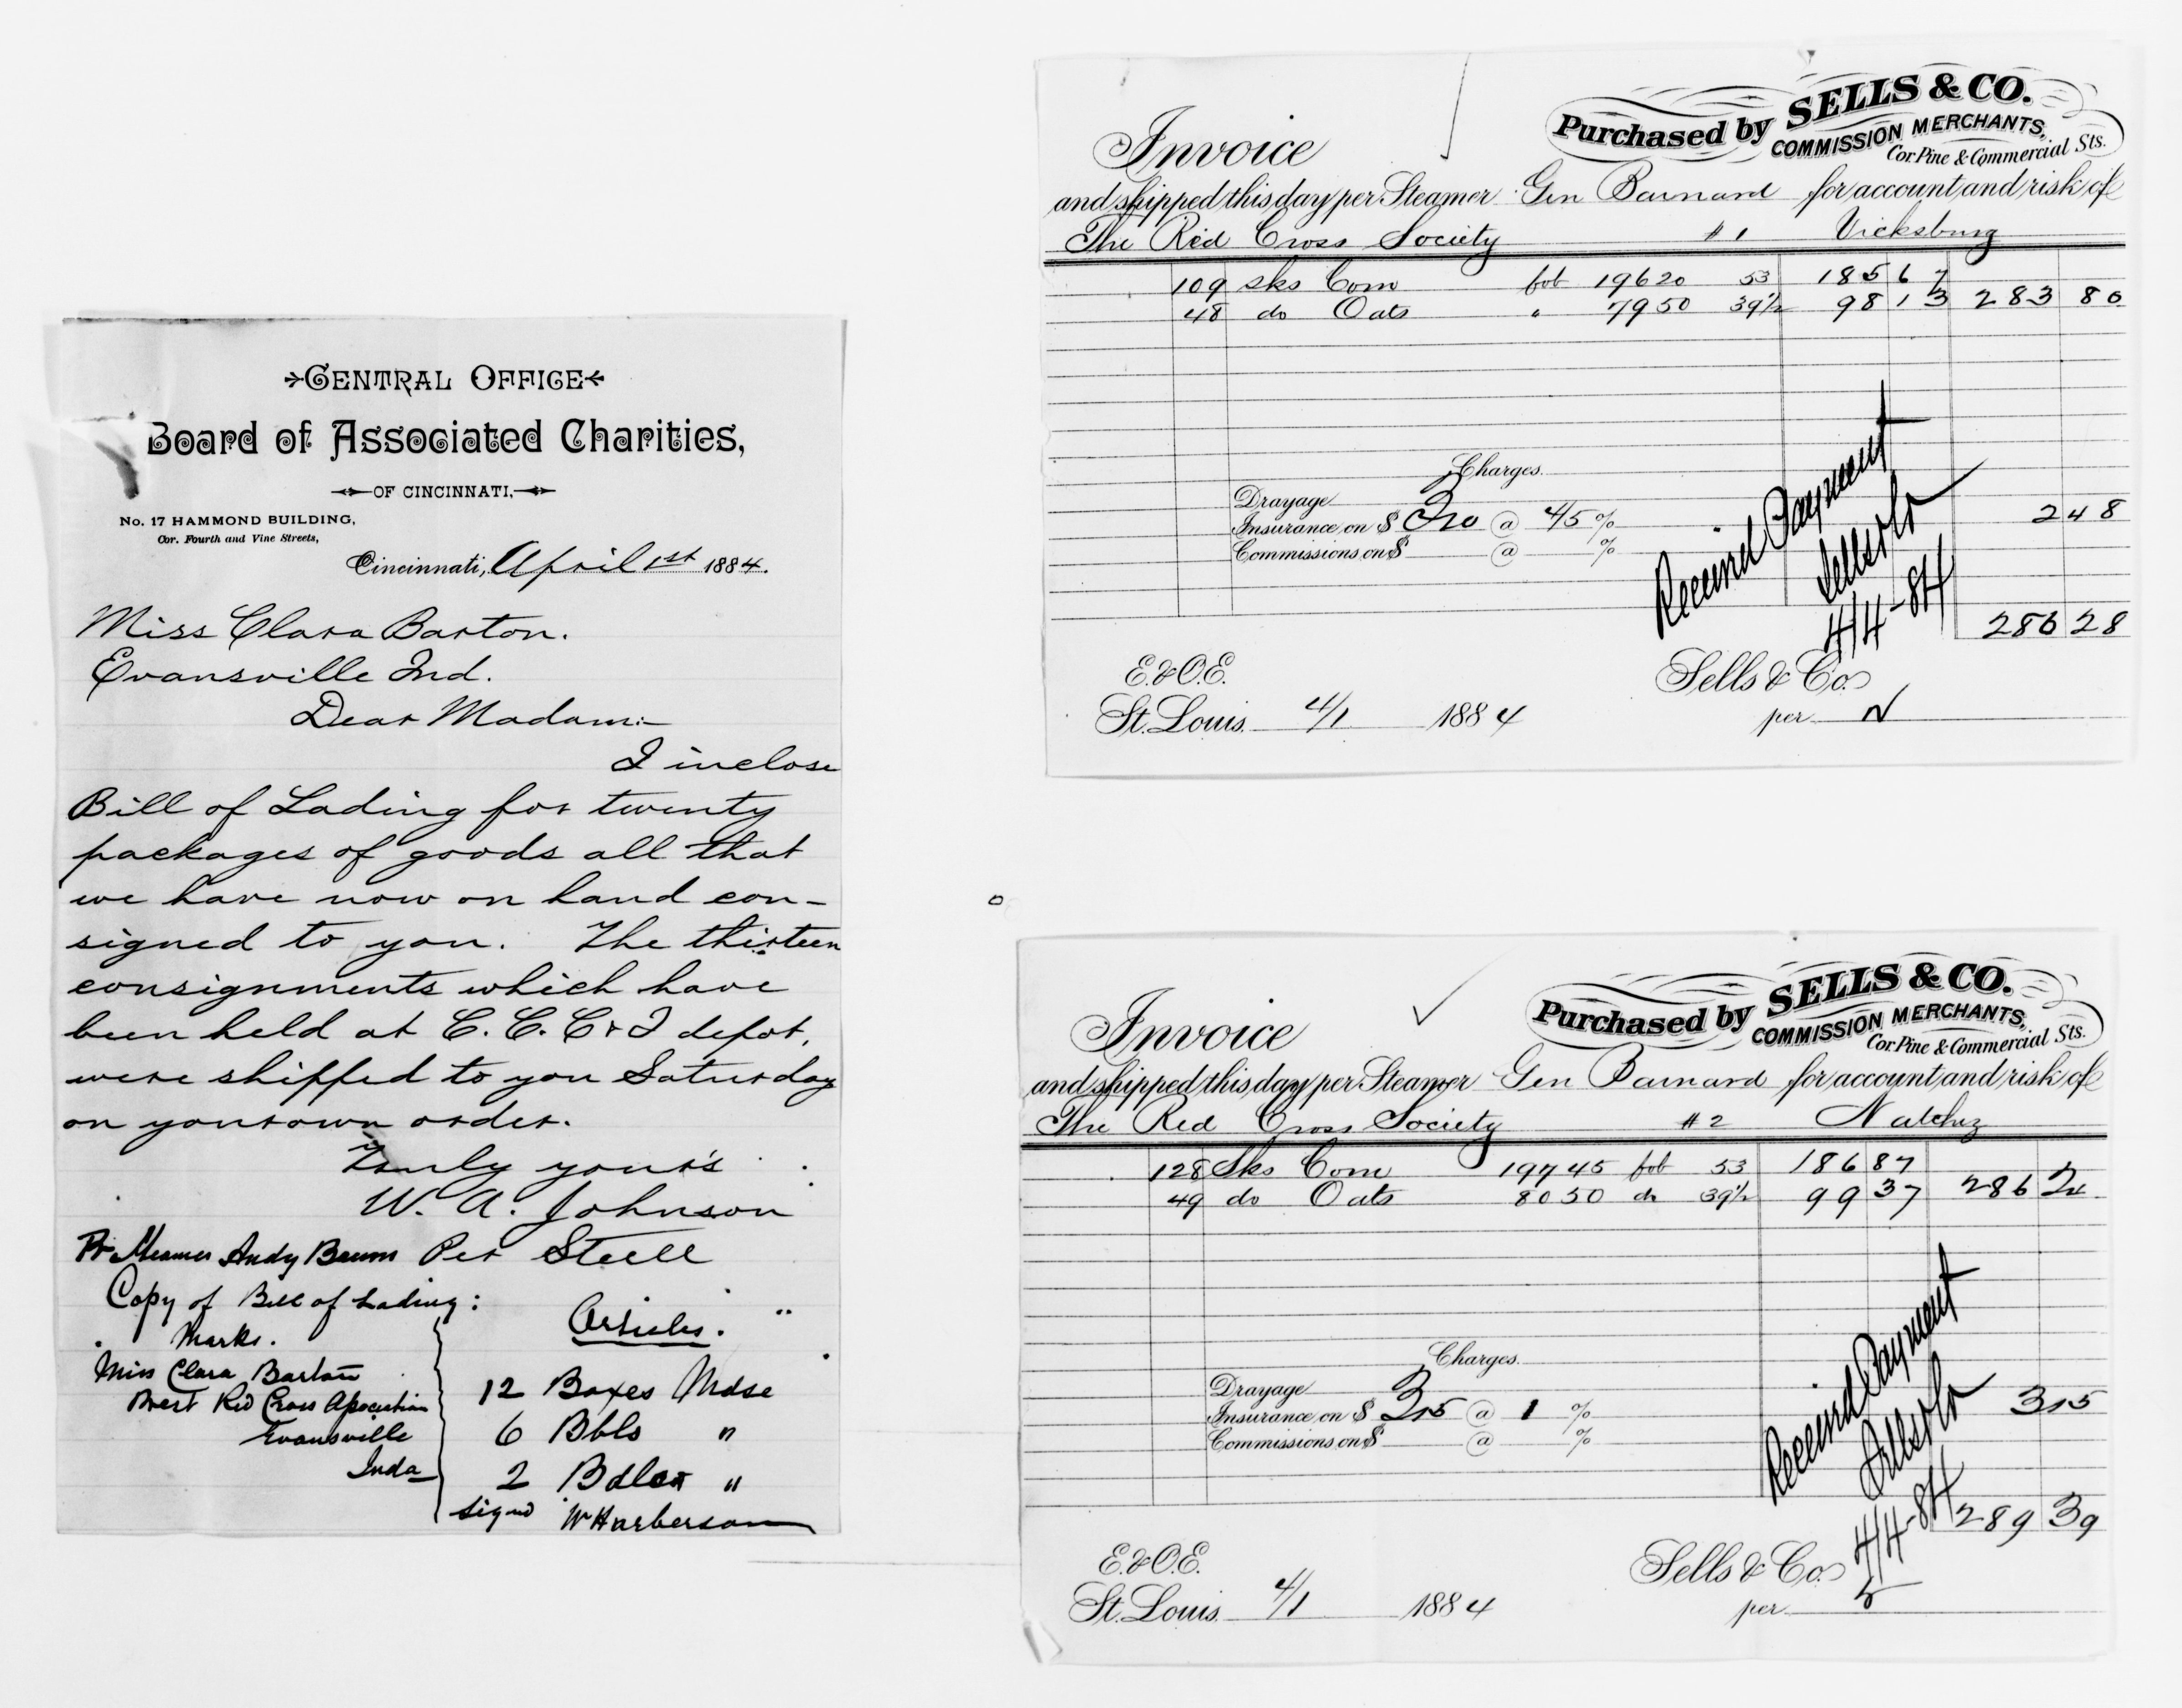 CENTRAL OFFICE
Board of Associated Charities,
OF CINCINNATI,
No. 17 HAMMOND BUILDING,
Cor. Fourth and Vine Streets,
Cincinnati, April 1st 1884.
Miss Clara Barton.
Evansville Ind.
Dear Madam:-
I inclose
Bill of Lading for twenty
packages of goods all that
we have now on hand con-
signed to you. The thirteen
consignments which have
been held at C. C. C & I depot,
were shipped to you Saturday
on your own order.
Truly your's
W. A. Johnson
Pr Steamer Andy Baum Per Steele
Copy of Bill of Lading:
Marks. Articles.
Miss Clara Barton
Prest Red Cross Association
Evansville
Inda
12 Boxes Mdse
6 Bbls "
2 Bdles "
signd W Harberson
Invoice
Purchased by SELLS & CO.
COMMISSION MERCHANTS,
Cor. Pine & Commercial Sts.
and shipped this day per Steamer Gen Barnard for account and risk of
The Red Cross Society #1 Vicksburg
109 sks Corn fob 19620 53 185 67
48 do Oats " 7950 39½ 98 13 283 80
Charges.
Drayage
Insurance on $ 310 @ 4/5 % 2 48
Commissions on $ @ %
Received Payment
Sells & Co
4/4-84
286 28
E. & O.E. Sells & Co.
St. Louis 4/1 1884 per N
Invoice
Purchased by SELLS & CO.
COMMISSION MERCHANTS,
Cor. Pine & Commercial Sts.
and shipped this day per Steamer Gen Barnard for account and risk of
The Red Cross Society #2 Natchez
128 Sks Corn 19745 fob 53 186 87
49 do Oats 8050 do 39½ 99 37 286 24
Charges.
Drayage
Insurance on $ 315 @ 1 % 3 15
Commissions on $ @ %
Received Payment
Sells & Co
4/4-84
289 39
E. & O.E. Sells & Co.
St. Louis 4/1 1884 per